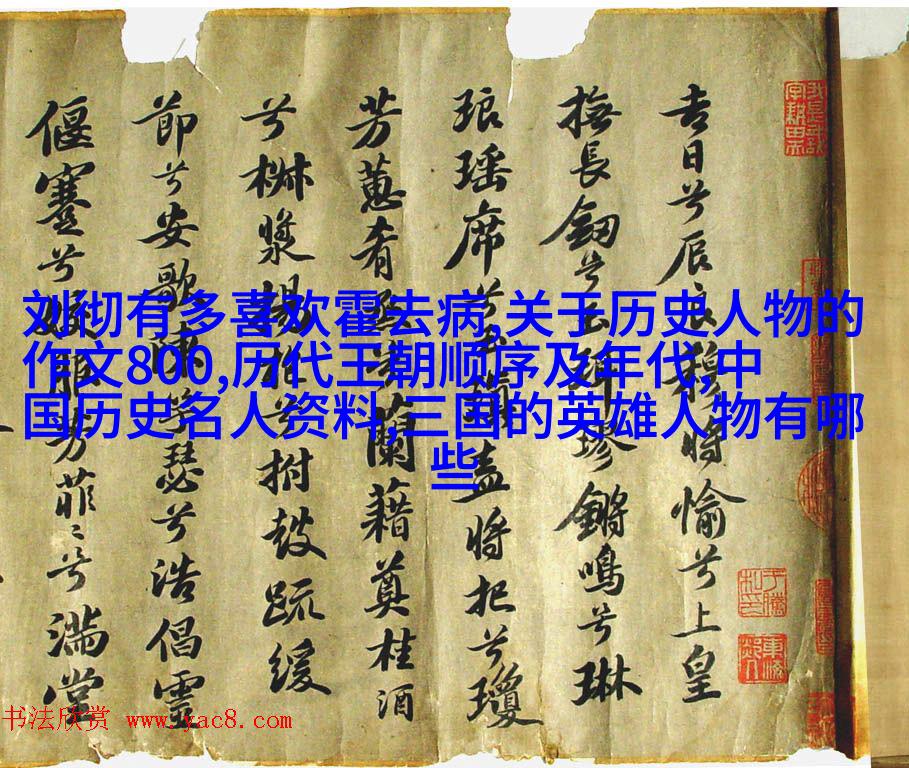 刘彻有多喜欢霍去病,关于历史人物的
作文800,历代王朝顺序及年代,中
国历史名人资料,三国的英雄人物有哪
些
吉日兮辰良穆將愉兮上皇
撫長劒兮玉珥璆鏘鳴兮琳
琅瑶席兮玉瑱盍將把兮瓊
芳蕙肴蒸兮蘭藉奠桂酒
兮椒漿揚枹兮拊鼓疏緩
節兮安歌陳竽瑟兮浩倡靈
偃蹇兮姣服芳菲〻兮滿堂
书法欣赏 www.yac8.com